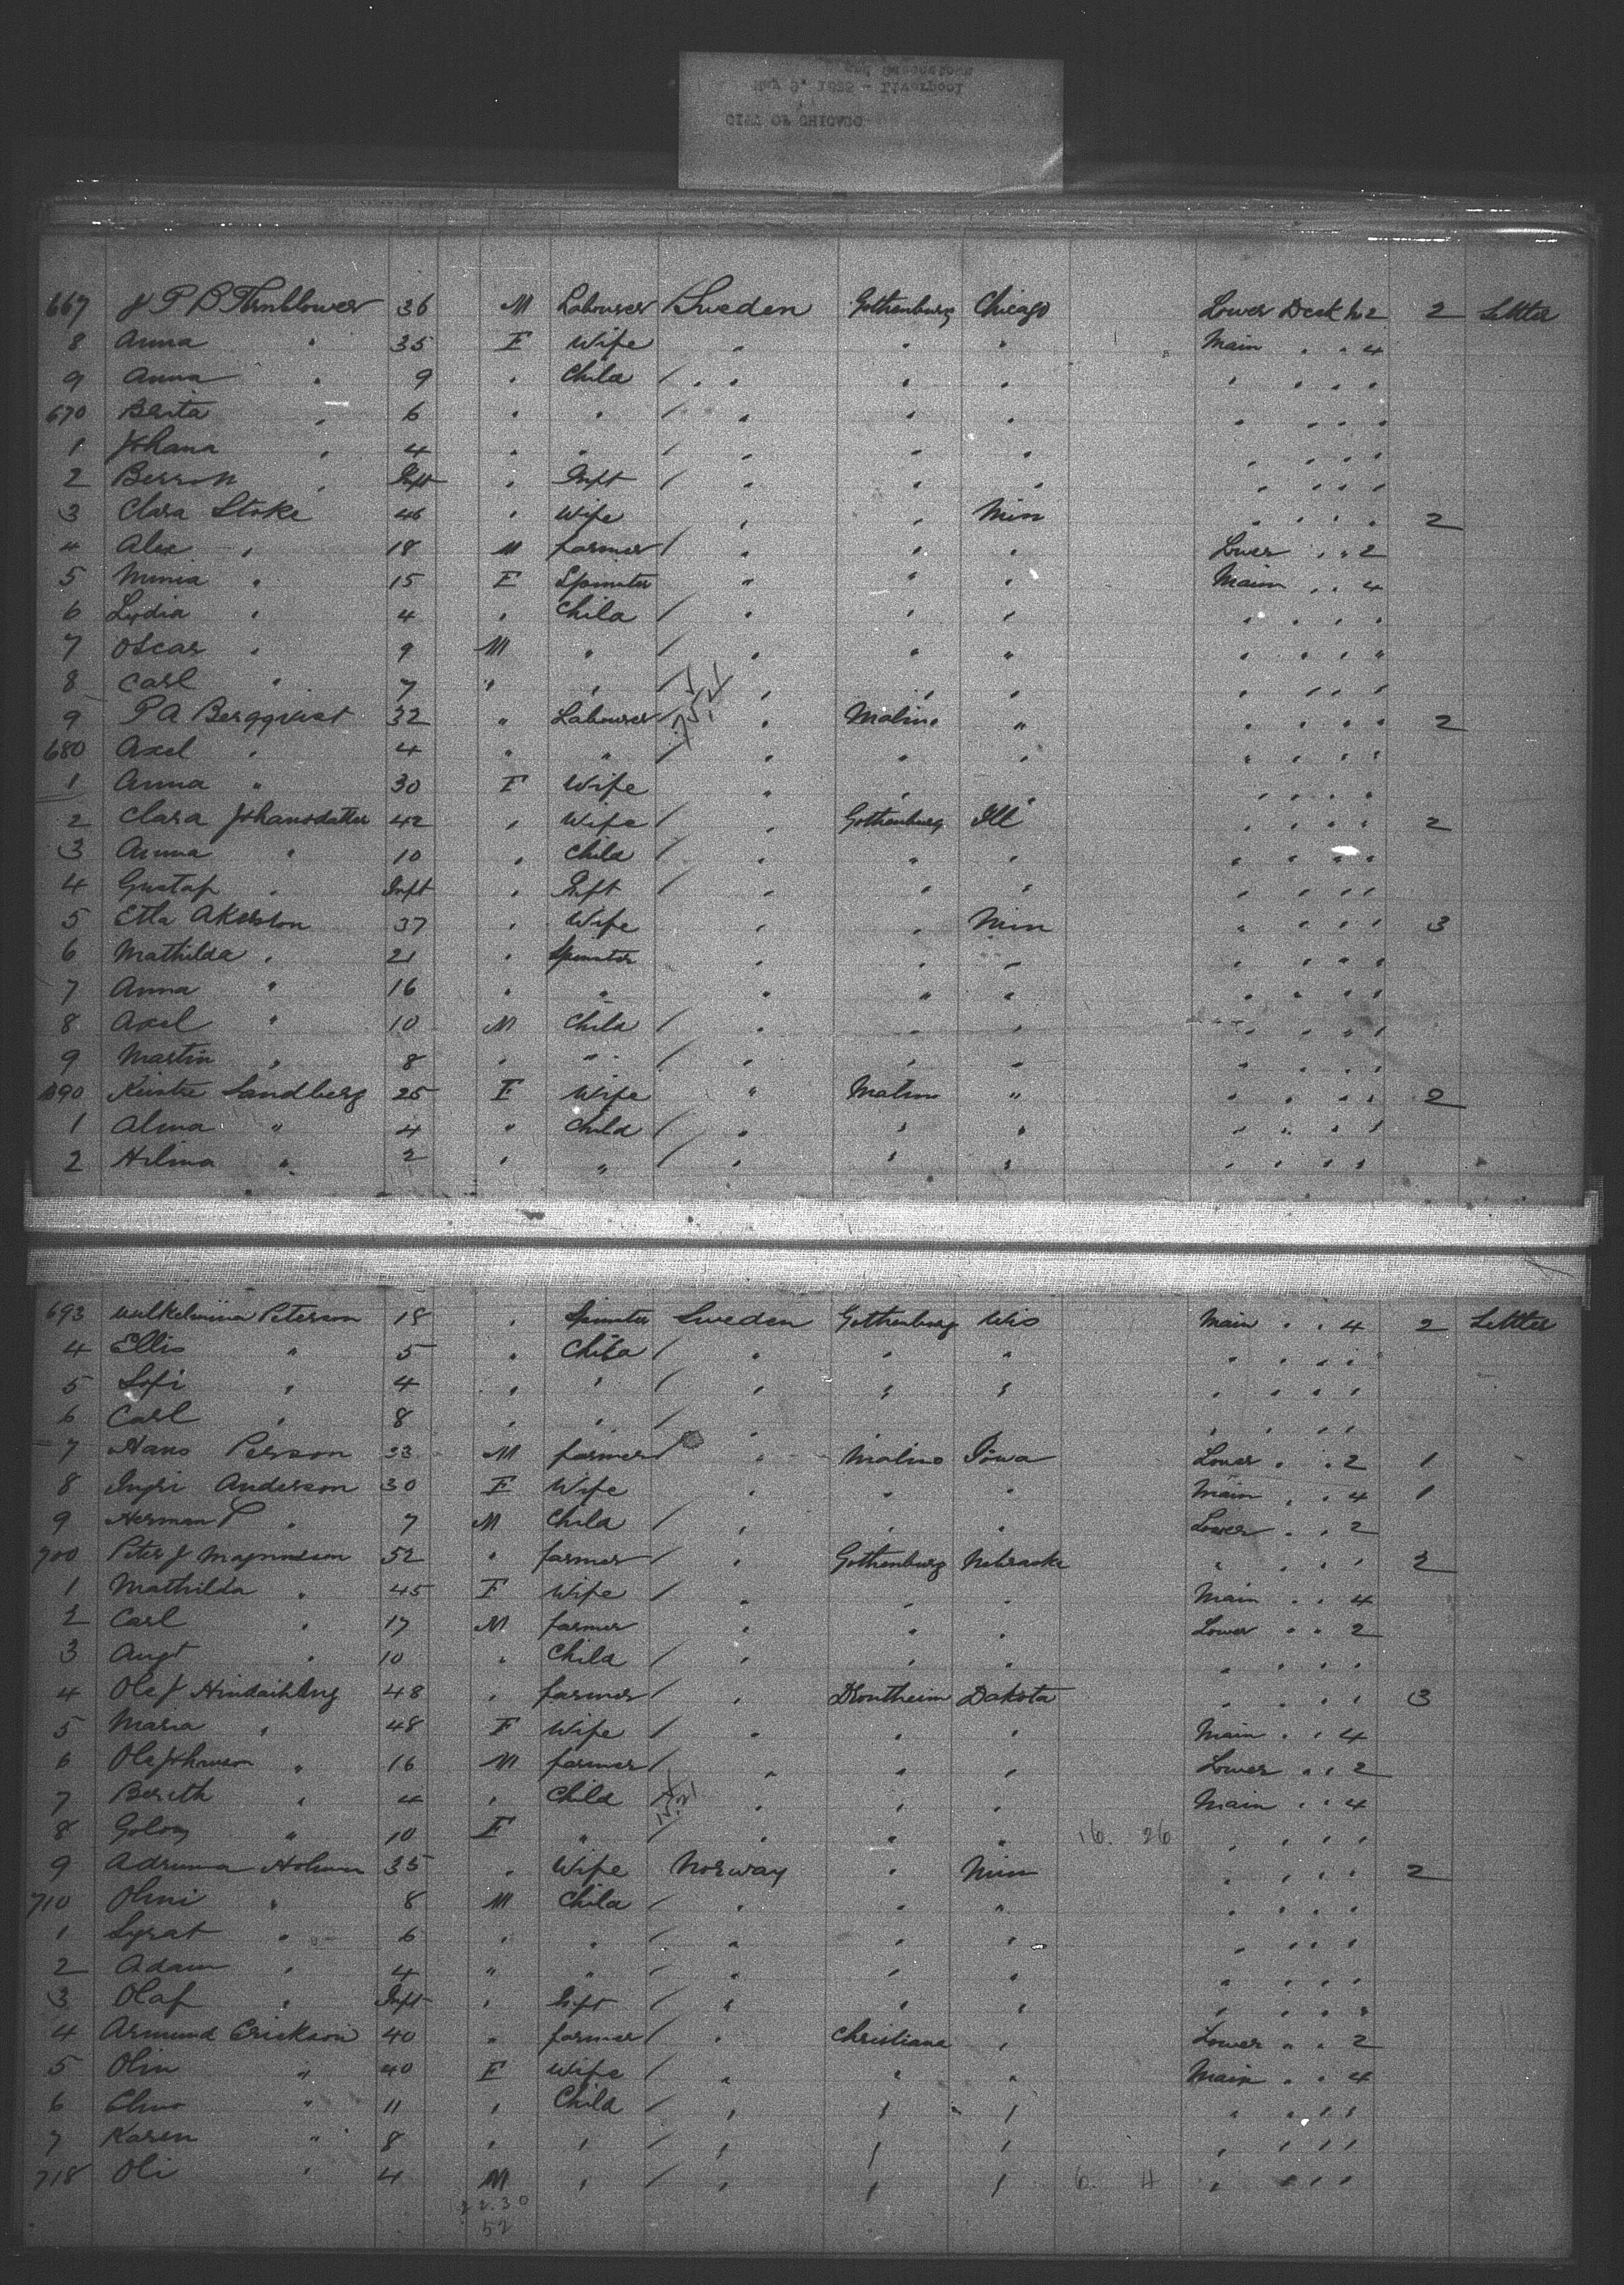 CITY OF CHICAGO
May 9, 1892 - Liverpool
and Queenstown
667 J P B Thrnblower 36 M Labourer Sweden Gothenburg Chicago Lower Deck No 2 2 Settler
8 Anna " 35 F Wife " " " Main " " 4
9 Anna " 9 " Child / " " " " " " " "
670 Berta " 6 " " / " " " " " " "
1 Johana " 4 " " / " " " " " " "
2 Berson " Inft " Inft / " " " " " " "
3 Clara Stoke 46 " Wife " " Min " " " " 2
4 Alex " 18 M farmer / " " " Lower " " 2
5 Minia " 15 F Spinster " " " Main " " 4
6 Lydia " 4 " Child / " " " " " " "
7 Oscar " 9 M " / " " " " " " "
8 Carl " 7 " " / " " " " " " "
9 P A Bergqvist 32 " Labourer " Malmo " " " " " 2
680 Axel " 4 " " / " " " " " " "
1 Anna " 30 F Wife " " " " " " "
2 Clara Johansdatter 42 " Wife / " Gothenburg Ill " " " " 2
3 Anna " 10 " Child / " " " " " " "
4 Gustaf " Inft " Inft / " " " " " " "
5 Etta Akerston 37 " Wife " " Min " " " " 3
6 Mathilda " 21 " Spinster " " " " " " "
7 Anna " 16 " " " " " " " " "
8 Axel " 10 M Child / " " " " " " "
9 Martin " 8 " " / " " " " " " "
690 Sandberg 25 F Wife " Malmo " " " " " 2
1 Alma " 4 " Child / " " " " " " "
2 Hilma " 2 " " / " " " " " " "
693 Wilhelmina Peterson 18 " Spinster Sweden Gothenburg Wis Main " " 4 2 Settler
4 Ellis " 5 " Child / " " " " " " "
5 Sofi " 4 " " / " " " " " " "
6 Carl " 8 " " / " " " " " " "
7 Hans Person 33 M farmer / " Malmo Iowa Lower " " 2 1
8 Ingri Anderson 30 F Wife " " " Main " " 4 1
9 Herman P " 7 M Child / " " " Lower " " 2
700 Peter J Magnusson 52 " farmer / " Gothenburg Nebraska " " " " 2
1 Mathilda " 45 F Wife / " " " Main " " 4
2 Carl " 17 M farmer " " " Lower " " 2
3 Augt " 10 " Child / " " " " " " "
4 Ole J 48 " farmer / " Drontheim Dakota " " " " 3
5 Maria " 48 F Wife / " " " Main " " 4
6 Ole Johnson " 16 M farmer / " " " Lower " " 2
7 Bereth " 4 " Child / " " " Main " " 4
8 Golom " 10 F " / " " " 16. 26 " " " "
9 Adruma Holmen 35 " Wife Norway " Min " " " " 2
710 Olmi " 8 M Child / " " " " " " "
1 Syrat " 6 " " / " " " " " " "
2 Adam " 4 " " / " " " " " " "
3 Olaf " Inft " Inft / " " " " " " "
4 Armund Erickson 40 " farmer / " Christiana " Lower " " 2
5 Olin " 40 F Wife / " " " Main " " 4
6 " 11 " Child / " " " " " " "
7 Karen " 8 " " / " " " " " " "
718 Oli " 4 M " / " " " 6. 4 " " " "
22.30
52